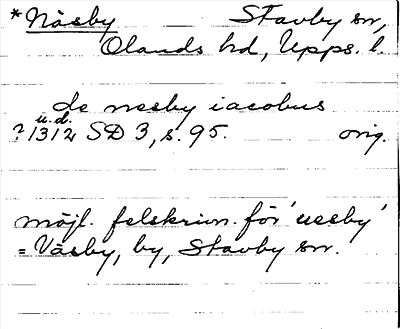 *Näsby Stavby sn,
Olands hd, Upps. l.
de nesby iacobus
u.d.
?1312 SD 3, s. 95. orig.
möjl. felskrivn. för 'uesby'
= Väsby, by, Stavby sn.